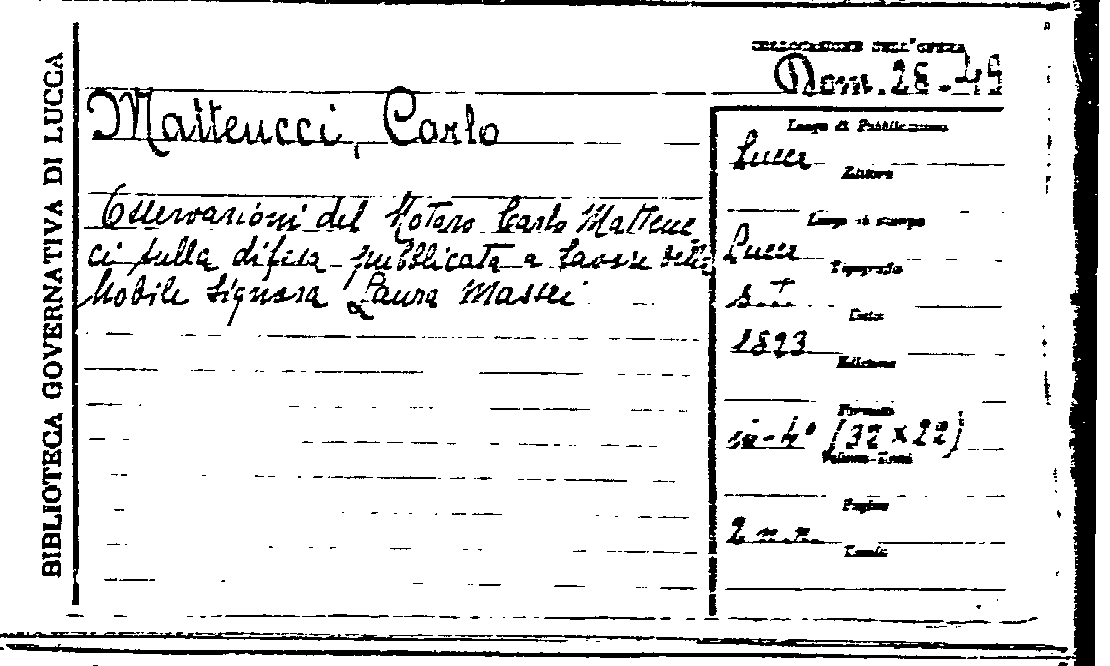 BIBLIOTECA GOVERNATIVA DI LUCCA
COLLOCAZIONE DELL'OPERA
Matteucci, Carlo
Osservazioni del Notaro Carlo Matteuc
ci sulla difesa pubblicata a favore della
Nobile Signora Laura Massei
Luogo di Pubblicazione
Lucca
Editore
Luogo di stampa
Lucca
Tipografia
s.t.
Data
1823
Edizione
Formato
in-4° (32 x 22)
Volume-Tomi
Pagine
2 n.n.
Tavole